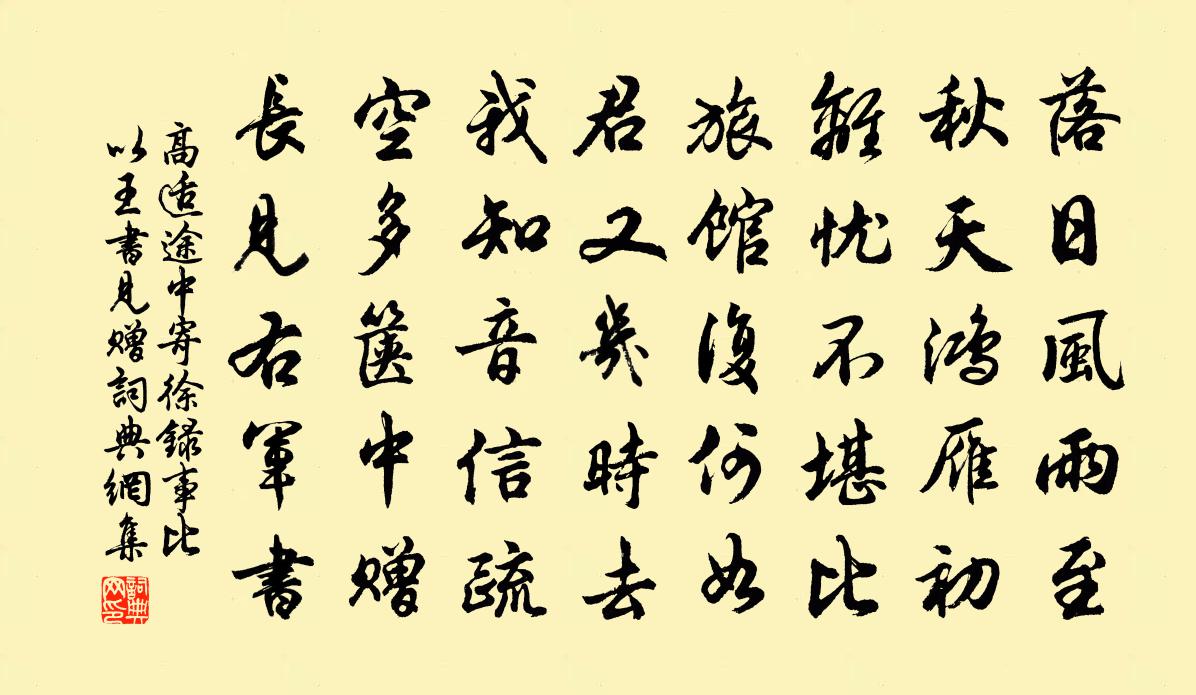 落日風雨至
秋天鴻雁初
離忧不堪比
旅館復何如
君又幾時去
我知音信疏
空多篋中贈
長見右軍書
高适途中寄徐録事比
以王書見贈詞典網集
詞典網印